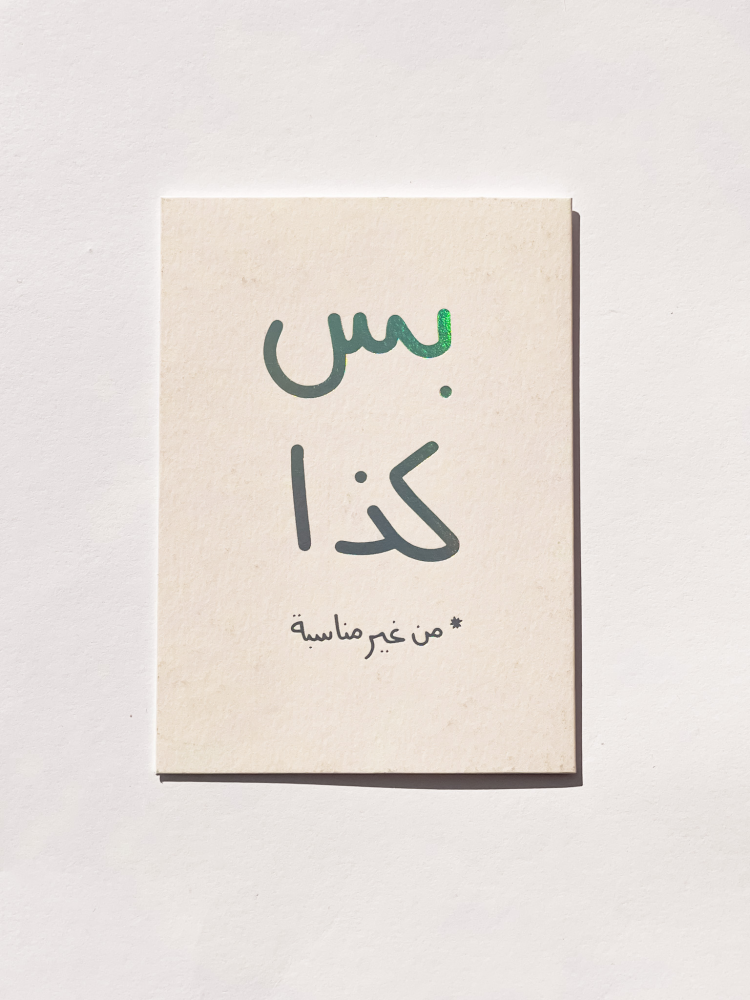 بس
كذا
* من غير مناسبة